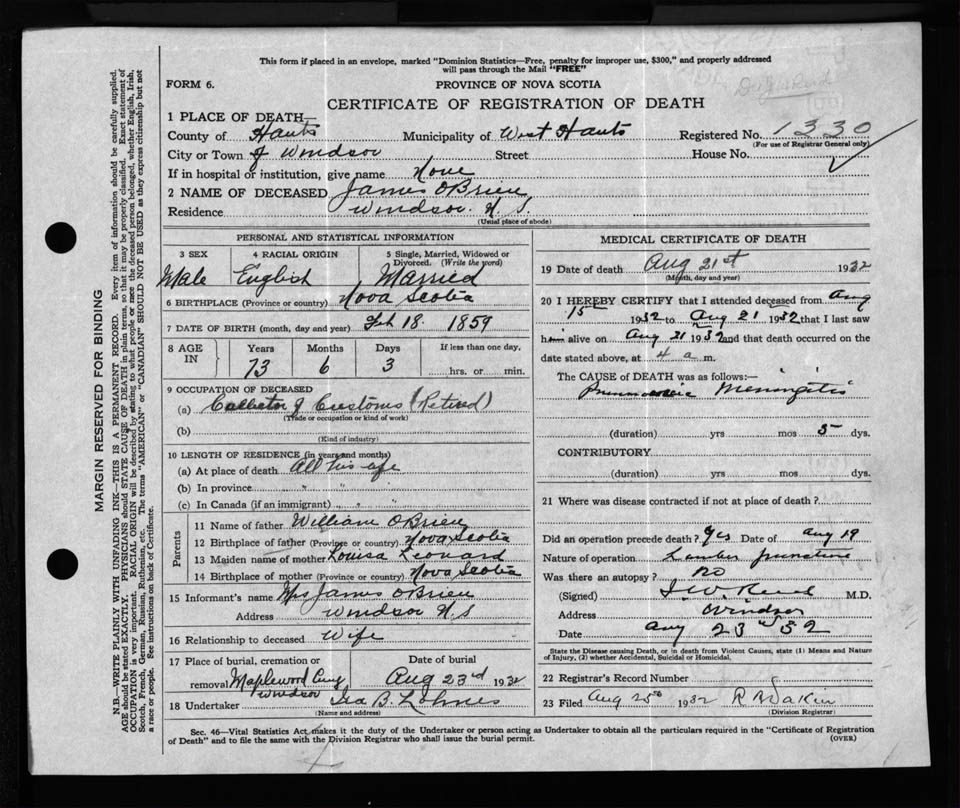 This form if placed in an envelope, marked "Dominion Statistics—Free, penalty for improper use, $300," and properly addressed
will pass through the Mail "FREE"
FORM 6.
PROVINCE OF NOVA SCOTIA
CERTIFICATE OF REGISTRATION OF DEATH
1 PLACE OF DEATH
County of Hants Municipality of West Hants Registered No. 1330
(For use of Registrar General only)
City or Town of Windsor Street House No.
If in hospital or institution, give name None
2 NAME OF DECEASED James O'Brien
Residence Windsor N.S.
(Usual place of abode)
PERSONAL AND STATISTICAL INFORMATION
3 SEX 4 RACIAL ORIGIN 5 Single, Married, Widowed or Divorced. (Write the word)
Male English Married
6 BIRTHPLACE (Province or country) Nova Scotia
7 DATE OF BIRTH (month, day and year) Feb 18. 1859
8 AGE IN Years Months Days If less than one day.
73 6 3 hrs. or min.
9 OCCUPATION OF DECEASED
(a) Collector of Customs (Retired)
(Trade or occupation or kind of work)
(b)
(Kind of industry)
10 LENGTH OF RESIDENCE (in years and months)
(a) At place of death All his life
(b) In province " "
(c) In Canada (if an immigrant) " "
Parents
11 Name of father William O'Brien
12 Birthplace of father (Province or country) Nova Scotia
13 Maiden name of mother Louisa Leonard
14 Birthplace of mother (Province or country) Nova Scotia
15 Informant's name Mrs James O'Brien
Address Windsor N.S
16 Relationship to deceased Wife
17 Place of burial, cremation or removal Maplewood Windsor
Date of burial
Aug 23rd 1932
18 Undertaker Ira B. Lohnes
(Name and address)
MEDICAL CERTIFICATE OF DEATH
19 Date of death Aug 21st 1932
(Month, day and year)
20 I HEREBY CERTIFY that I attended deceased from Aug
15th 1932 to Aug 21 1932 that I last saw
him alive on Aug 21 1932 and that death occurred on the
date stated above, at 4 a m.
The CAUSE of DEATH was as follows:—
Meningitis
(duration) yrs mos 5 dys.
CONTRIBUTORY
(duration) yrs mos dys.
21 Where was disease contracted if not at place of death?
Did an operation precede death? Yes Date of Aug 19
Nature of operation Lumbar puncture
Was there an autopsy? no
(Signed) M.D.
Address Windsor
Date Aug 23rd 32
State the Disease causing Death, or in death from Violent Causes, state (1) Means and Nature
of Injury, (2) whether Accidental, Suicidal or Homicidal.
22 Registrar's Record Number
23 Filed Aug 25th 1932
(Division Registrar)
Sec. 46—Vital Statistics Act, makes it the duty of the Undertaker or person acting as Undertaker to obtain all the particulars required in the "Certificate of Registration
of Death" and to file the same with the Division Registrar who shall issue the burial permit. (OVER)
MARGIN RESERVED FOR BINDING
N.B.—WRITE PLAINLY WITH UNFADING INK—THIS IS A PERMANENT RECORD. Every item of information should be carefully supplied.
AGE should be stated EXACTLY. PHYSICIANS should STATE CAUSE OF DEATH in plain terms, so that it may be properly classified. Exact statement of
OCCUPATION is very important. RACIAL ORIGIN will be described by stating to what people or race the deceased person belonged, whether English, Irish,
Scotch, French, German, Russian, Ruthenian, etc. The terms "AMERICAN" or "CANADIAN" SHOULD NOT BE USED as they express citizenship but not
a race or people. See instructions on back of Certificate.